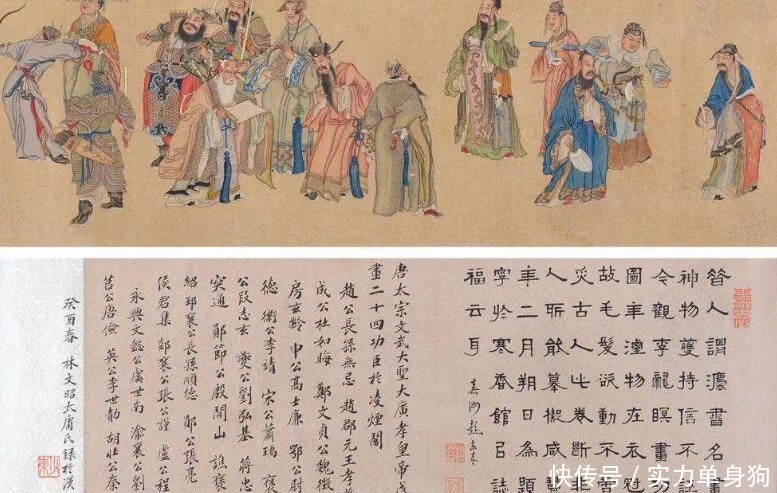 昔人謂灋書名畫
神物護持信不誣
今觀李龍瞑畫功
圖年湮物在衣冠
故毛髮欲動不
災古人此卷斷非
人所能摹擬咸豐
年二月朔日為題
寧於寒香館㠯誌
福云耳
唐太宗文武大聖大廣孝皇帝戊
畫二十四功臣於凌煙閣
趙公長孫無忌 趙郡元王孝
成公杜如晦 鄭文貞公魏徵
房玄齡 申公高士廉 鄂公尉
德 衛公李靖 宋公蕭瑀 褒
公段志玄 夔公劉弘基 蔣忠
突通 鄖節公殷開山 譙襄
紹 邳襄公長孫順德 鄖公張亮
侯君集 郯襄公張公謹 盧公程
永興文懿公虞世南 渝襄公劉
莒公唐儉 英公李世勣 胡壯公秦
癸酉春 林文昭太庸氏錄於漢
快传号／实力单身狗